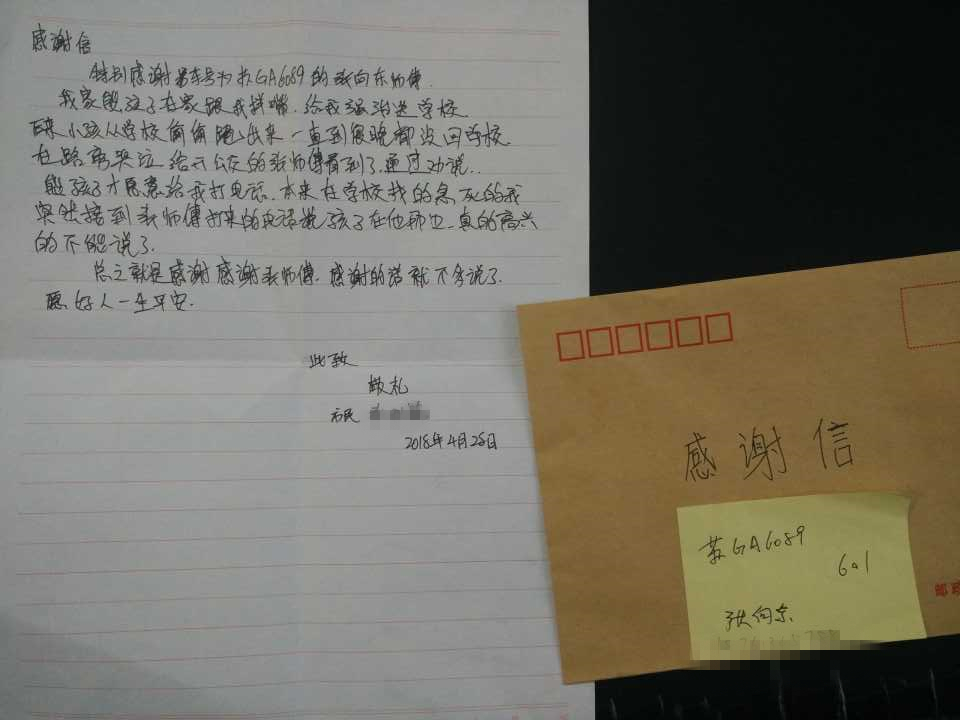 感谢信
特别感谢车号为苏GA6089的张向东师傅.
我家熊孩子在家跟我拌嘴.给我强治送学校.
小孩从学校偷偷跑出来一直到很晚都没回学校
在路旁哭泣 给开公交的张师傅看到了.通过劝说..
熊孩子才愿意给我打电话.本来在学校找的急死的我
突然接到张师傅打来的电话说孩子在他那边.真的高兴
的不能说了.
总之就是感谢感谢张师傅.感谢的话就不多说了.
愿好人一生平安.
此致
敬礼
市民
2018年4月28日
感谢信
苏GA6089
601
张向东